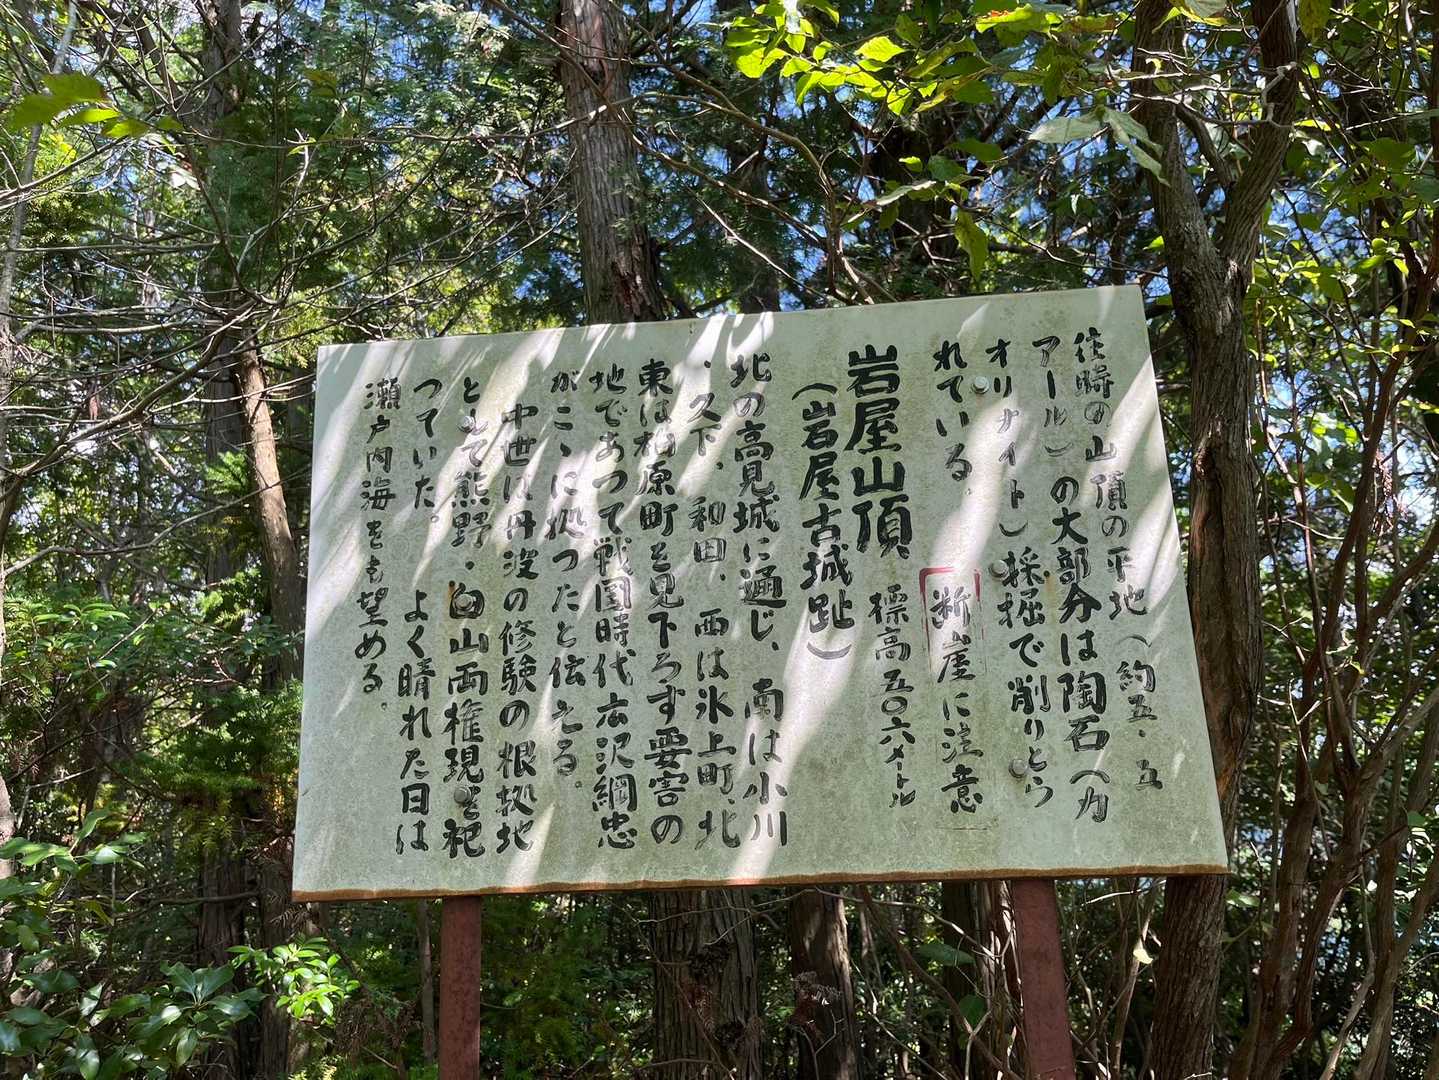 往時の山頂の平地（約五・五
アール）の大部分は陶石（カ
オリナイト）採掘で削りとら
れている。
断崖に注意
岩屋山頂 標高五〇六メートル
（岩屋古城趾）
北の高見城に通じ、南は小川
、久下、和田、西は氷上町、北
東は柏原町を見下ろす要害の
地であつて戦国時代広沢綱忠
がこゝに拠つたと伝える。
中世は丹波の修験の根拠地
として熊野、白山両権現を祀
つていた。
よく晴れた日は
瀬戸内海をも望める。